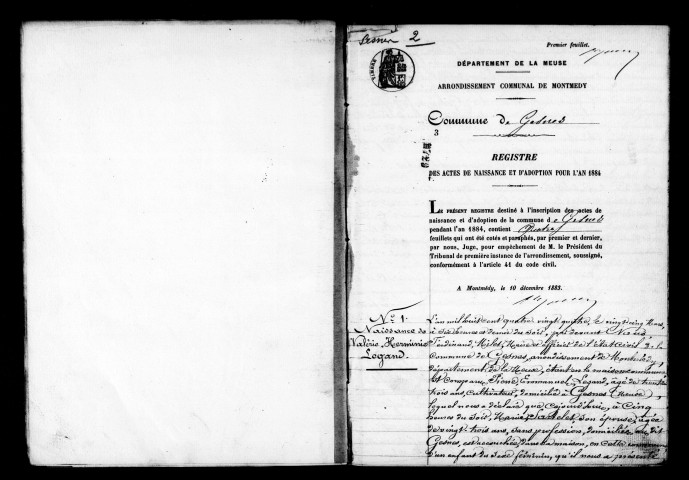 2
Premier feuillet.
TIMBRE
DÉPARTEMENT DE LA MEUSE
ARRONDISSEMENT COMMUNAL DE MONTMEDY
Commune de Gesnes
3
REGISTRE
DES ACTES DE NAISSANCE ET D'ADOPTION POUR L'AN 1884
LE PRÉSENT REGISTRE destiné à l'inscription des actes de
naissance et d'adoption de la commune d e Gesnes
pendant l'an 1884, contient quatre
feuillets qui ont été cotés et paraphés, par premier et dernier,
par nous, Juge, pour empêchement de M. le Président du
Tribunal de première instance de l'arrondissement, soussigné,
conformément à l'article 41 du code civil.
A Montmédy, le 10 décembre 1883.
No 1.
Naissance de
Valérie Herminie
Legand.
L'an mil huit cent quatre vingt quatre, le vingt cinq Mars,
à six heures et demie du soir, par devant Nous
Ferdinand, Maire et officier de l'état civil de la
commune de Gesnes, arrondissement de Montmédy,
département de la Meuse, étant en la maison commune,
Est comparu Emmanuel Legand, âgé de trente
trois ans, cultivateur, domicilié à Gesnes (Meuse),
lequel nous a déclaré que cejourd'hui, à cinq
heures du soir, Marie son épouse, âgée
de vingt trois ans, sans profession, domiciliée au dit
Gesnes, est accouchée dans sa maison, en cette commune
d'un enfant du sexe féminin, qu'il nous a présenté